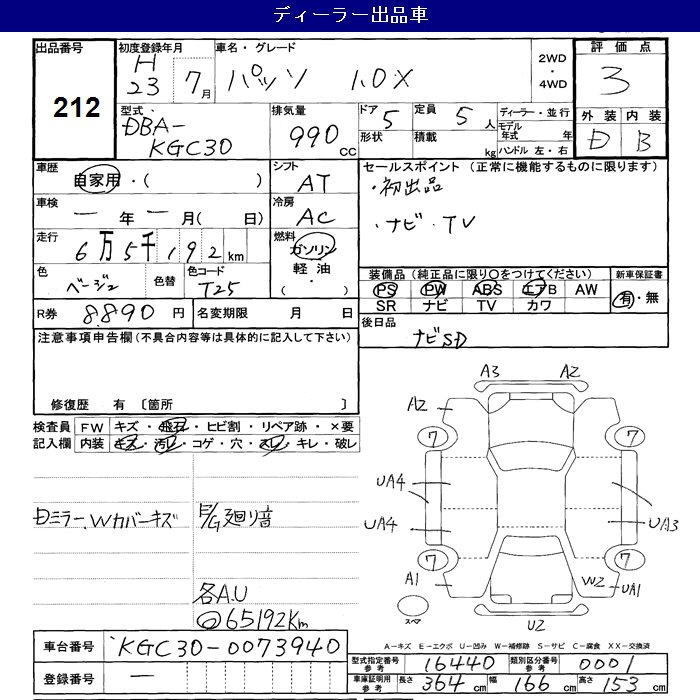 ディーラー出品車
出品番号 初度登録年月 車名・グレード 2WD・4WD 評価点
212
H23 7月 パッソ 1.0X 3
型式 排気量 ドア 定員 ディーラー・並行 外装 内装
DBA-KGC30 990cc 5 5人 モデル年式 年 D B
形状 積載 kg ハンドル 左・右
車歴 自家用・( ) シフト AT セールスポイント (正常に機能するものに限ります)
・初出品
車検 ー年ー月( 日) 冷房 AC ・ナビ・TV
走行 6万5千192km 燃料 ガソリン 軽油 ・( )
色 ベージュ 色替 色コード T25
装備品 (純正品に限り○をつけてください) 新車保証書
PS PW ABS エアB AW 有・無
SR ナビ TV カワ
R券 8.890円 名変期限 月 日
後日品 ナビSD
注意事項申告欄(不具合内容等は具体的に記入して下さい)
修復歴 有 〔箇所 〕
検査員 FW キズ・飛石・ヒビ割・リペア跡・×要
記入欄 内装 キズ・汚レ・コゲ・穴・スレ・キレ・破レ
Dミラー.Wカバーキズ E/G廻り音
各A.U
◎65192Km
A3 A2
A2
7 7
UA4
UA4 UA3
7 7
A1 W2 UA1
スペア U2
A-キズ E-エクボ U-凹み W-補修跡 S-サビ C-腐食 XX-交換済
車台番号 KGC30-0073940
型式指定番号 参考 16440 類別区分番号 参考 0001
登録番号 ー
車庫証明用 参考 長さ 364cm 幅 166cm 高さ 153cm